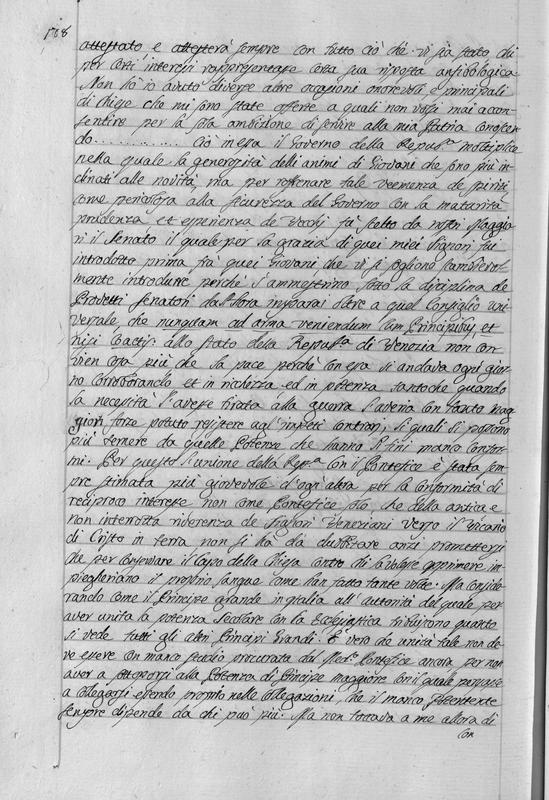 168
attestato e attesterà sempre con tutto ciò che vi sia stato chi
per certi interessi rappresentasse certa sua risposta anfibologica
Non hò io avuto diverse altre occasioni onorevoli e principali
di Chiese che mi sono state offerte a quali non volsi mai accon-
sentire per la sola ambitione di servire alla mia Patria conoscen-
do............. Ciò messa il Governo della Repub.ca
nella quale la generosità delli animi di Giovani che sono più in-
clinati alle novità, ma per raffrenare tale veemenza de spiriti
come pericolosa alla sicurezza del Governo con la maturità
prudenza et esperienza de Vecchi fù scelto da nostri Maggio-
ri il Senato il quale per la grazia di quei miei Signori fui
introdotto prima frà quei Giovani, che vi si sogliono
mente introdurre perche s'ammestrino sotto la disciplina de
Provetti Senatori da allora imparai oltre a quel Consiglio uni-
versale, che nunquam ad arma veniendum cum Principibus, et
nisi coactis allo stato della Repub.ca di Venezia non con-
vien cosa più che la pace perche con essa si andava ogni gior-
no corroborando et in richezza ed in potenza tantoche quando
la necessità l'avesse tirata alla guerra s'averia con tanto mag-
giori forze potuto resistere agl'impeti contrarij, li quali si possono
più temere da quelle Potenze che hanno li fini manco
mi. Per questo l'unione della Rep.ca con il Pontefice è stata sem-
pre stimata più giovevole d'ogn'altra per la conformità di
reciproco interesse non come Pontefice solo, che della antica e
non interrotta riverenza de Signori Veneziani verso il Vicario
di Cristo in terra non si ha da dubbitare anzi promettersi
che per conservare il Capo della Chiesa contro di chi volesse opprimere, im-
piegheriano il proprio sangue come han fatto tante volte. Ma conside-
rando come il Principe grande in Italia all'autorità del quale per
aver unita la potenza secolare con la Ecclesiastica
si vede tutti gli altri Principi Grandi. È vero che unità tale non de-
ve essere con manco studio procurata dal Med.o Pontefice ancora per non
aver a opporsi alla Potenza di Principe maggiore con il quale
a collegarsi essendo proprio nelle collegazioni, che il manco Potente
sempre dipende da chi può più. Ma non toccava a me allora di
con